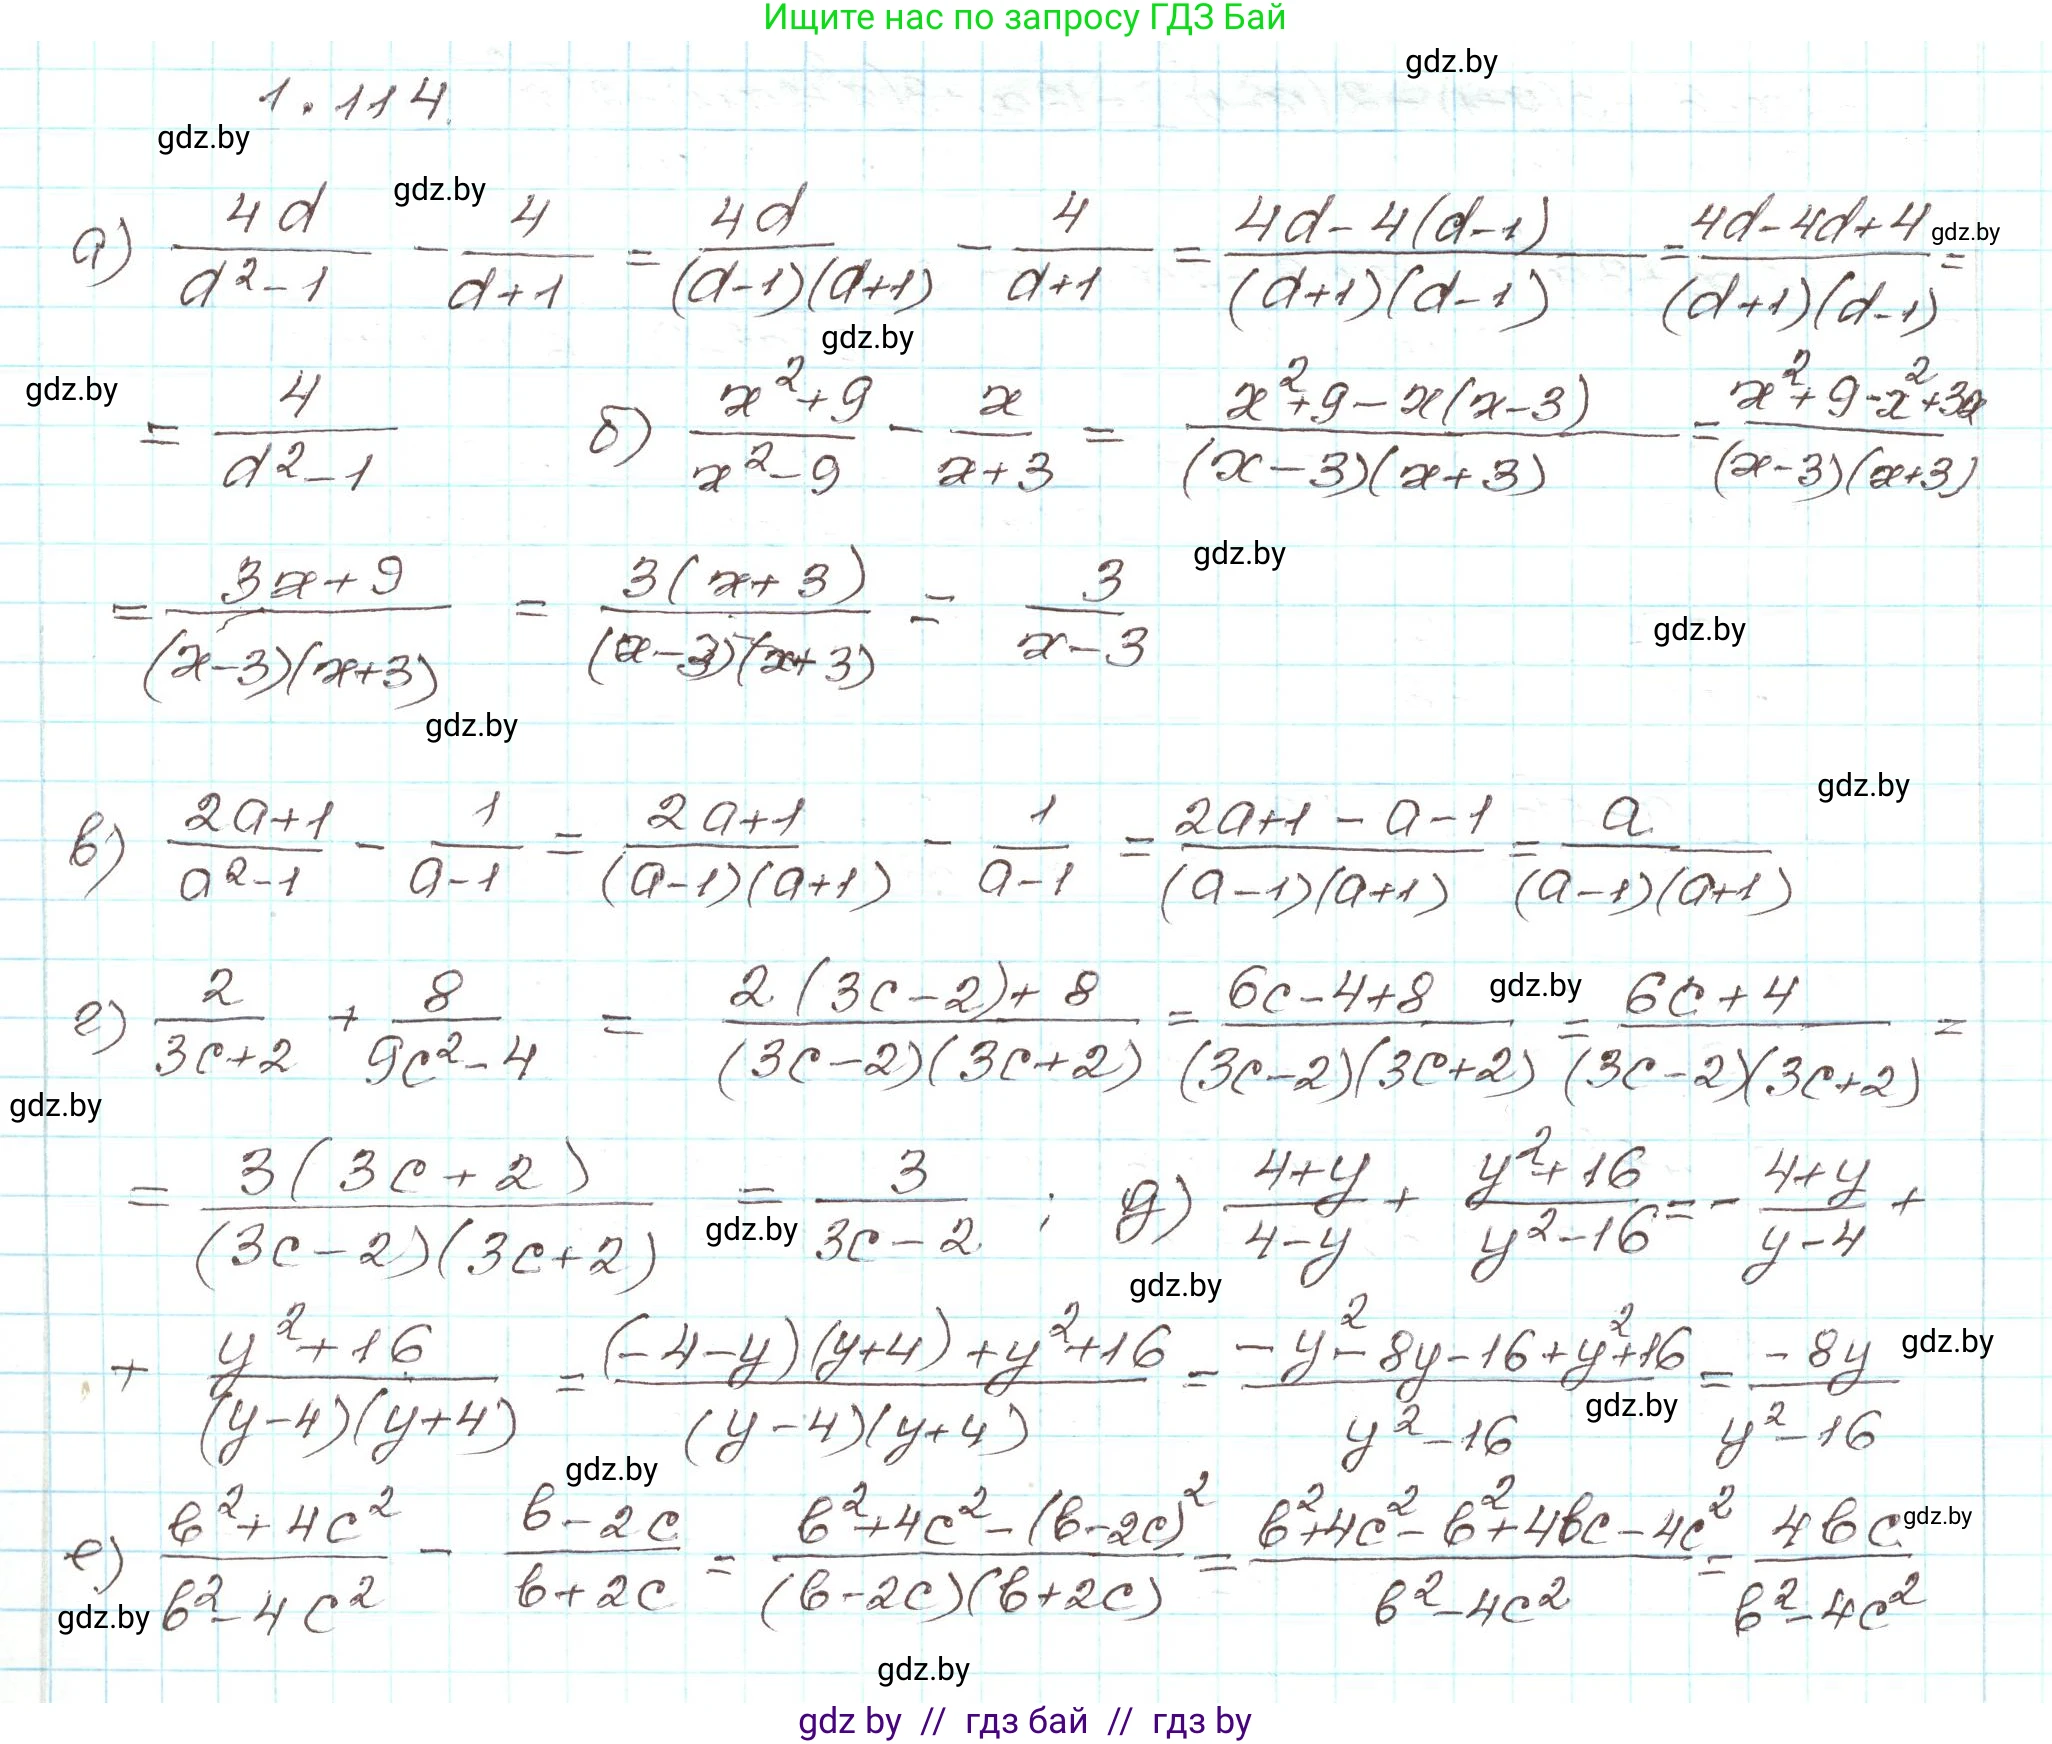 Ищите нас по запросу ГДЗ Бай
gdz.by
1.114.
gdz.by
gdz.by
а) 4d/(d²-1) - 4/(d+1) = 4d/((d-1)(d+1)) - 4/(d+1) = (4d-4(d-1))/((d+1)(d-1)) = (4d-4d+4)/((d+1)(d-1)) =
gdz.by
gdz.by
gdz.by
= 4/(d²-1) б) (x²+9)/(x²-9) - x/(x+3) = (x²+9-x(x-3))/((x-3)(x+3)) = (x²+9-x²+3x)/((x-3)(x+3))
gdz.by
= (3x+9)/((x-3)(x+3)) = 3(x+3)/((x-3)(x+3)) = 3/(x-3)
gdz.by
gdz.by
gdz.by
в) (2a+1)/(a²-1) - 1/(a-1) = (2a+1)/((a-1)(a+1)) - 1/(a-1) = (2a+1-a-1)/((a-1)(a+1)) = a/((a-1)(a+1))
gdz.by
г) 2/(3c+2) + 8/(9c²-4) = (2(3c-2)+8)/((3c-2)(3c+2)) = (6c-4+8)/((3c-2)(3c+2)) = (6c+4)/((3c-2)(3c+2)) =
gdz.by
= 3(3c+2)/((3c-2)(3c+2)) = 3/(3c-2) ; д) (4+y)/(4-y) + (y²+16)/(y²-16) = - (4+y)/(y-4) +
gdz.by
gdz.by
+ (y²+16)/((y-4)(y+4)) = ((-4-y)(y+4)+y²+16)/((y-4)(y+4)) = (-y²-8y-16+y²+16)/(y²-16) = -8y/(y²-16)
gdz.by
gdz.by
gdz.by
е) (b²+4c²)/(b²-4c²) - (b-2c)/(b+2c) = (b²+4c²-(b-2c)²)/((b-2c)(b+2c)) = (b²+4c²-b²+4bc-4c²)/(b²-4c²) = 4bc/(b²-4c²)
gdz.by
gdz.by
gdz.by
gdz by // гдз бай // гдз by